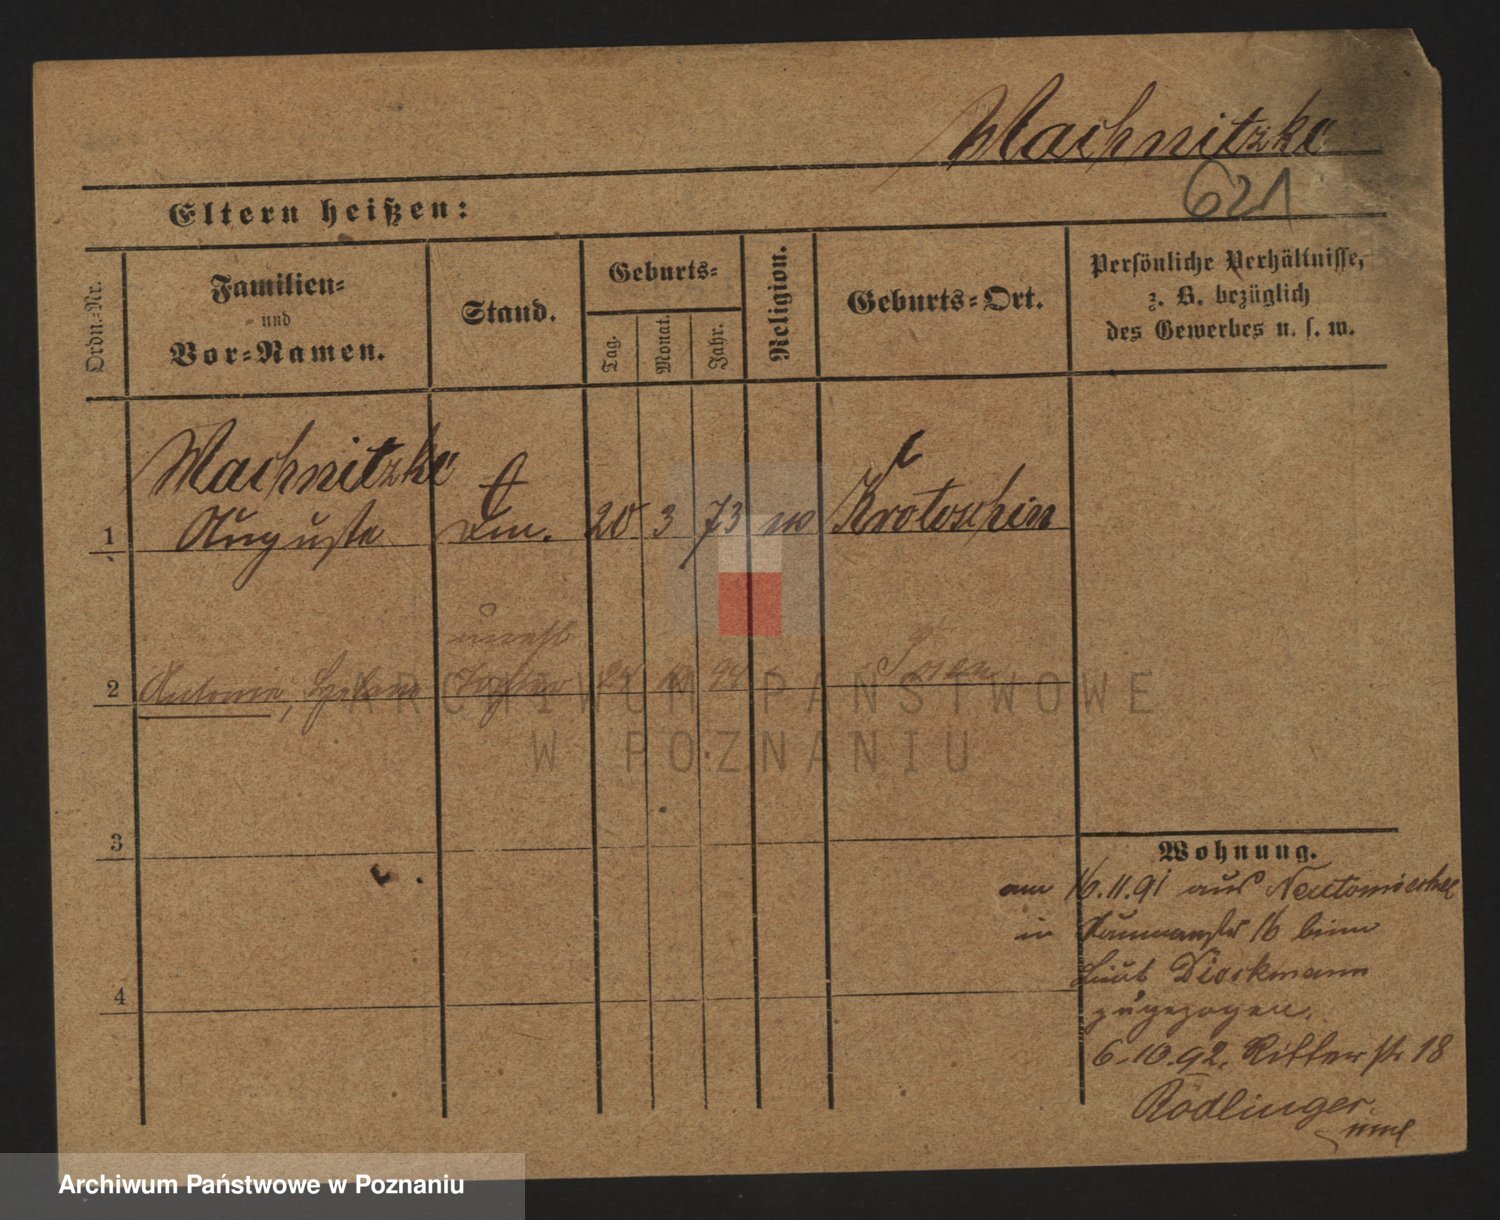 Machnitzke
621
Eltern heißen:
Ordn.-Nr.
Familien-
und
Vor-Namen.
Stand.
Geburts-
Tag.
Monat.
Jahr.
Religion.
Geburts-Ort.
Persönliche Verhältnisse,
z. B. bezüglich
des Gewerbes u. s. w.
Machnitzke
1 Auguste 20 3 73 Krotoschin
unehl
2 Antonie, Helene Tochter 94 Posen
3
4
Wohnung.
am 16.11.91 aus
in 16 beim
Dieckmann
zugezogen.
6.10.92. Ritterstr 18
Rödlinger
ARCHIWUM PAŃSTWOWE
W POZNANIU
Archiwum Państwowe w Poznaniu